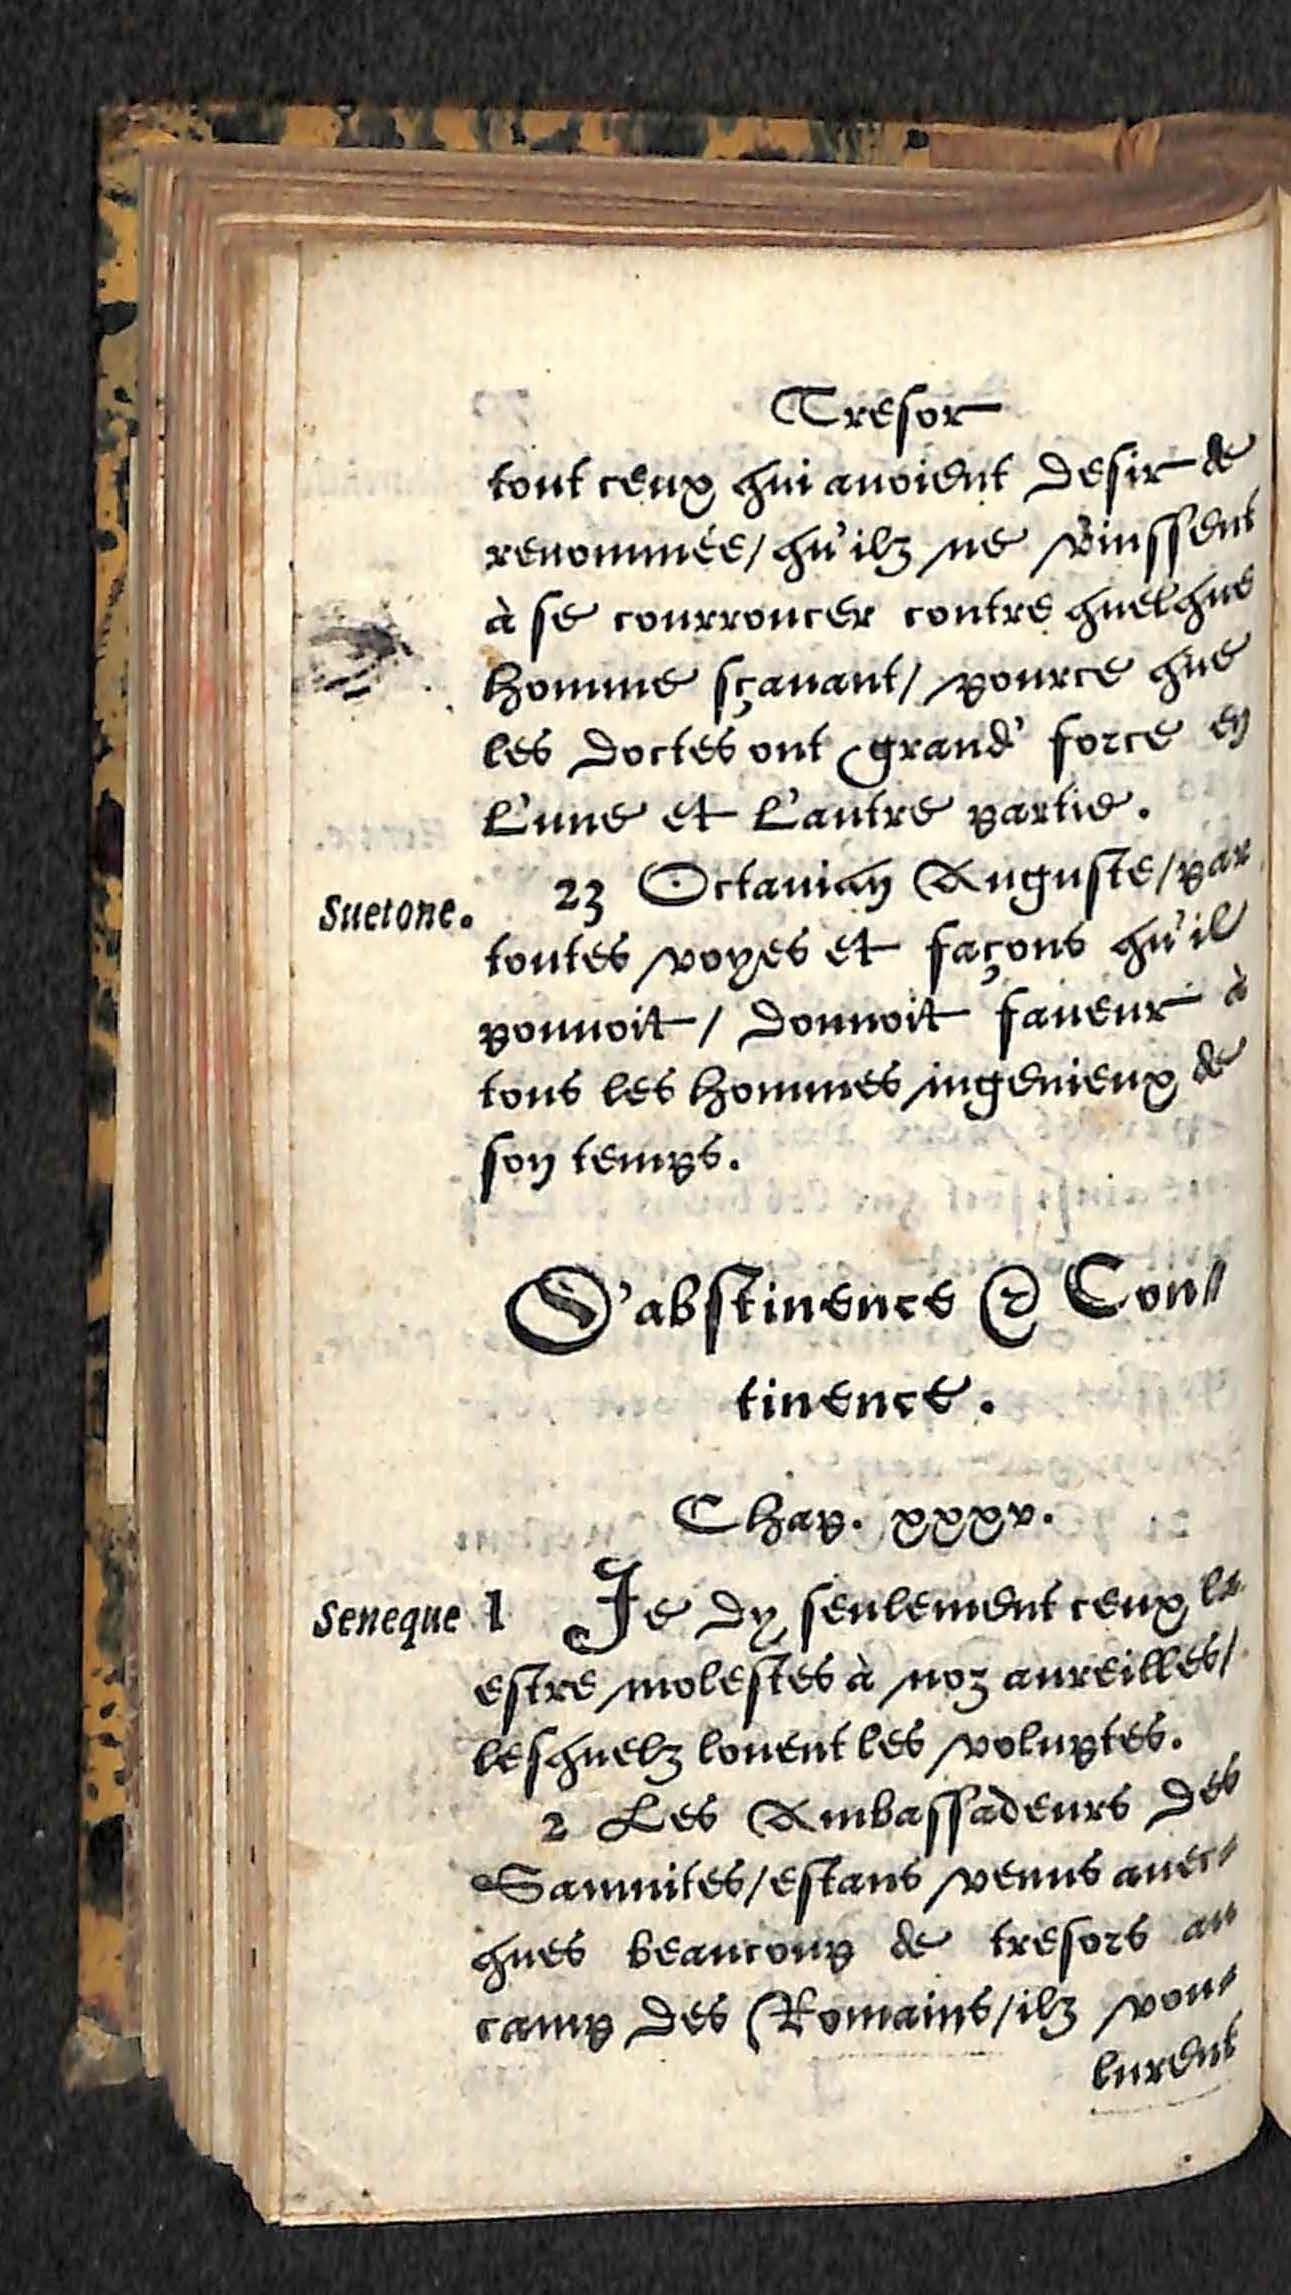 Tresor
tout ceux qui auoient desir de
renommée/ qu'ilz ne vinssent
à se courroucer contre quelque
homme sçauant/ pource que
les doctes ont grand' force en
l'une et l'autre partie.
Suetone. 23 Octauian Auguste/ par
toutes voyes et façons qu'il
pouuoit/ donnoit faueur à
tous les hommes ingenieux de
son temps.
D'abstinence & Con⸗
tinence.
Chap. xxxv.
Seneque 1 Je dy seulement ceux la
estre molestes à noz aureilles/
lesquelz louent les voluptes.
2 Les Ambassadeurs des
Samnites/ estans venus auec⸗
ques beaucoup de tresors au
camp des Romains/ ilz vou⸗
lurent